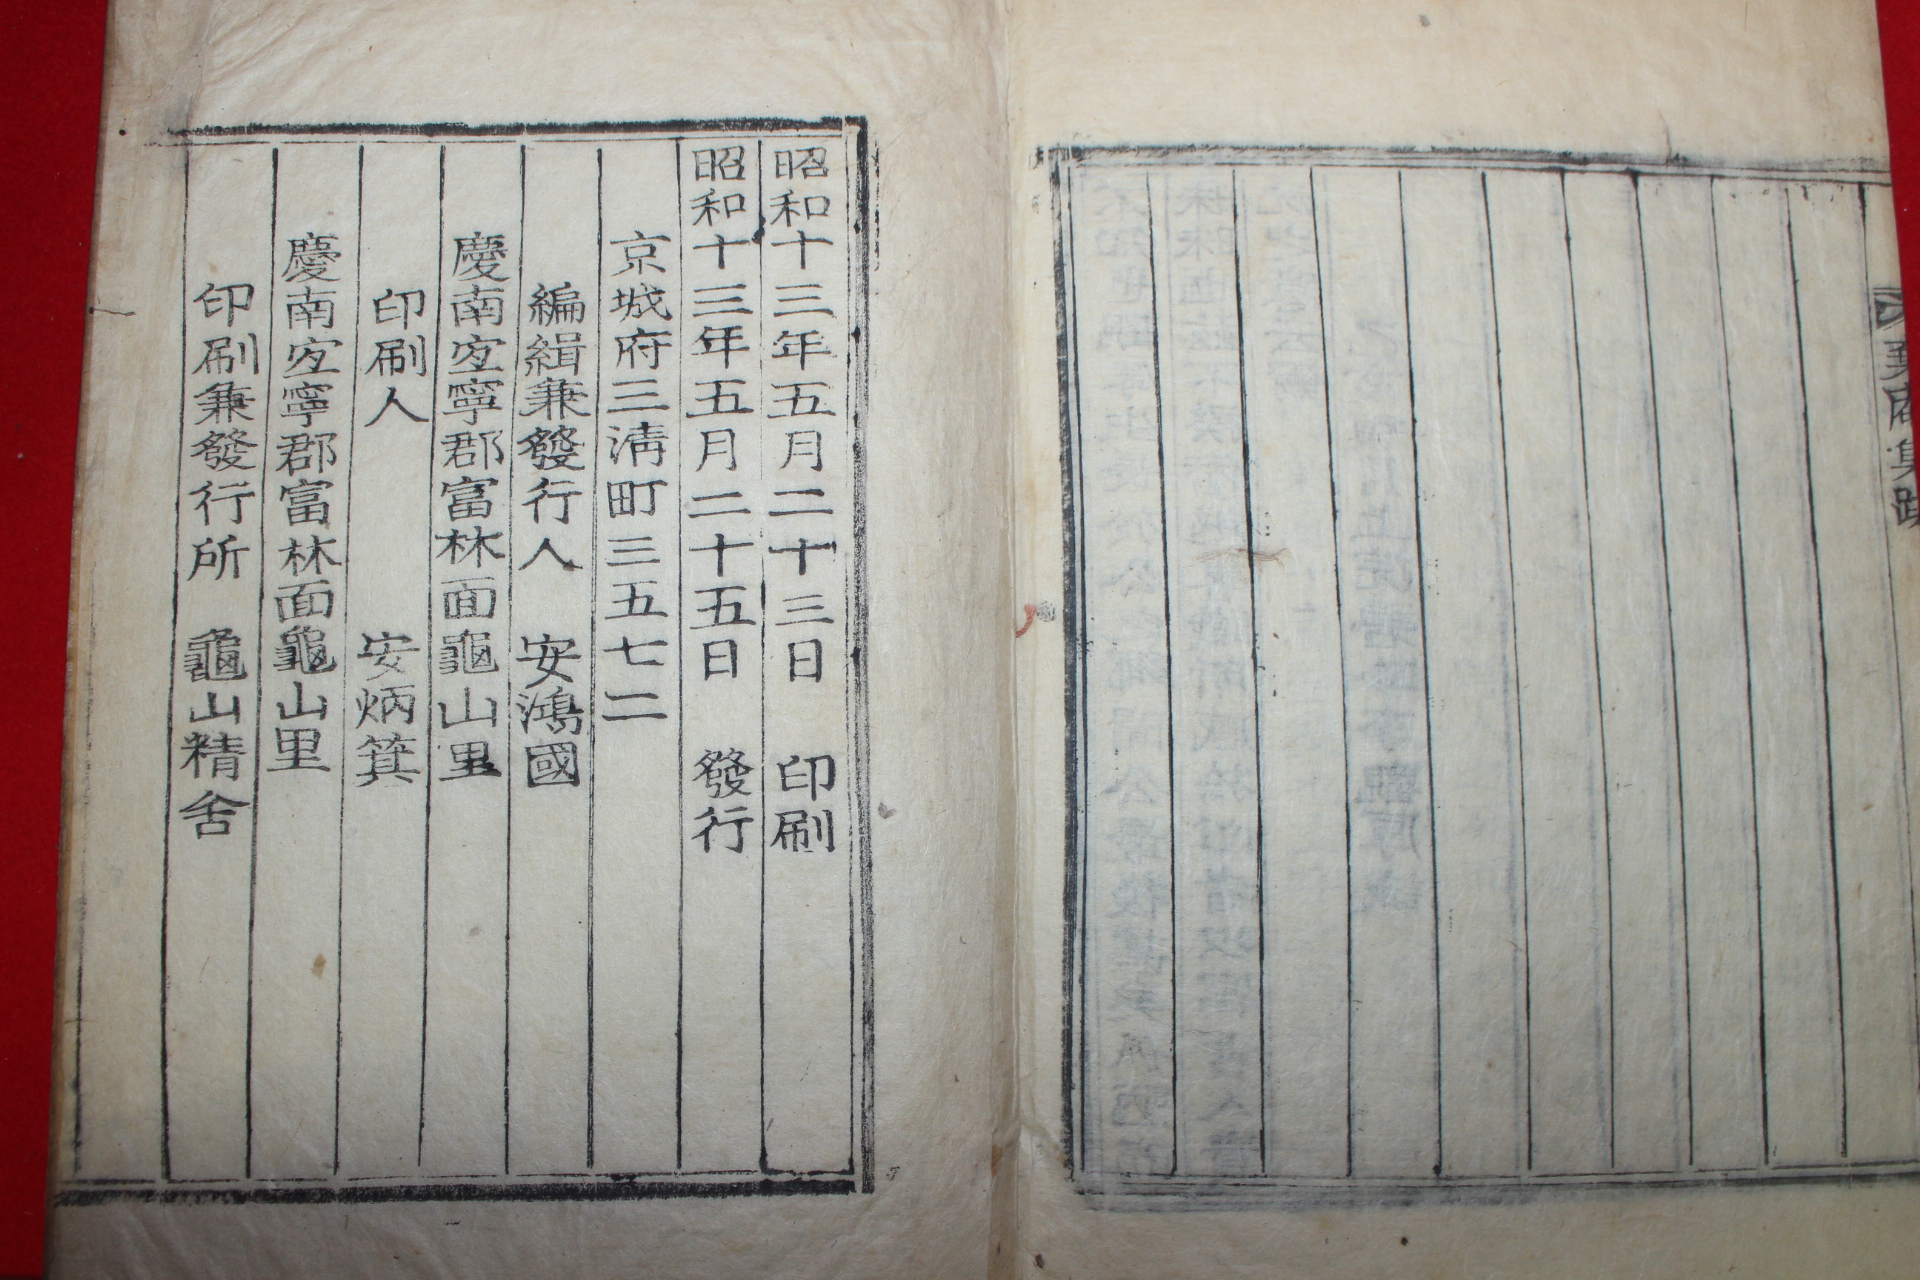 庵集跋
昭和十三年五月二十三日 印刷
昭和十三年五月二十五日 發行
京城府三淸町三五七二
編緝兼發行人 安鴻國
慶南宐寧郡富林面龜山里
印刷人 安炳箕
慶南宐寧郡富林面龜山里
印刷兼發行所 龜山精舍